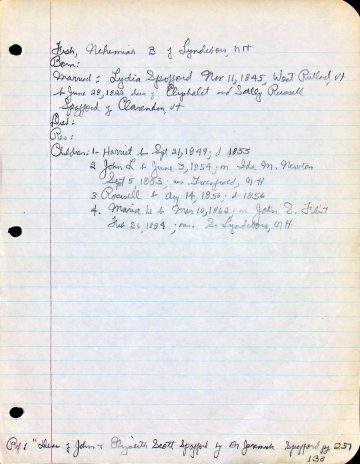 Fish, Nehemiah B of Lyndeboro, NH
Born:
Married: Lydia Spofford Nov 11, 1845, West Rutland, Vt
b June 28, 1822, dau of Eliphalet and Sally Russell
Spofford of Clarendon, Vt
Died:
Res:
Children: 1- Harriet b Sept 21, 1849; d 1853
2 John L b June 3, 1854; m Ida M. Newton
Sept 5, 1883; res Greenfield, N.H
3 Roswell b Aug 14, 1855; d 1856
4. Maria b Mar 10, 1862; m John D. Flint
Feb 26, 1884; res. So Lyndeboro, N.H
Ref: "Desc of John & Elizabeth Scott Spofford by Dr Jeremiah Spofford pg 257
130